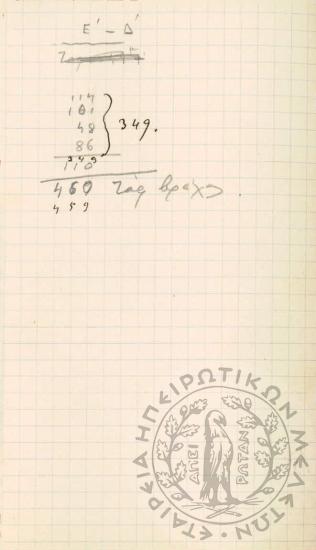 Ε' – Δ'
114
101
48
86
349.
349
110
460
459
ΕΤΑΙΡΕΙΑ ΗΠΕΙΡΩΤΙΚΩΝ ΜΕΛΕΤΩΝ
ΑΠΕΙ ΡΩΤΑΝ